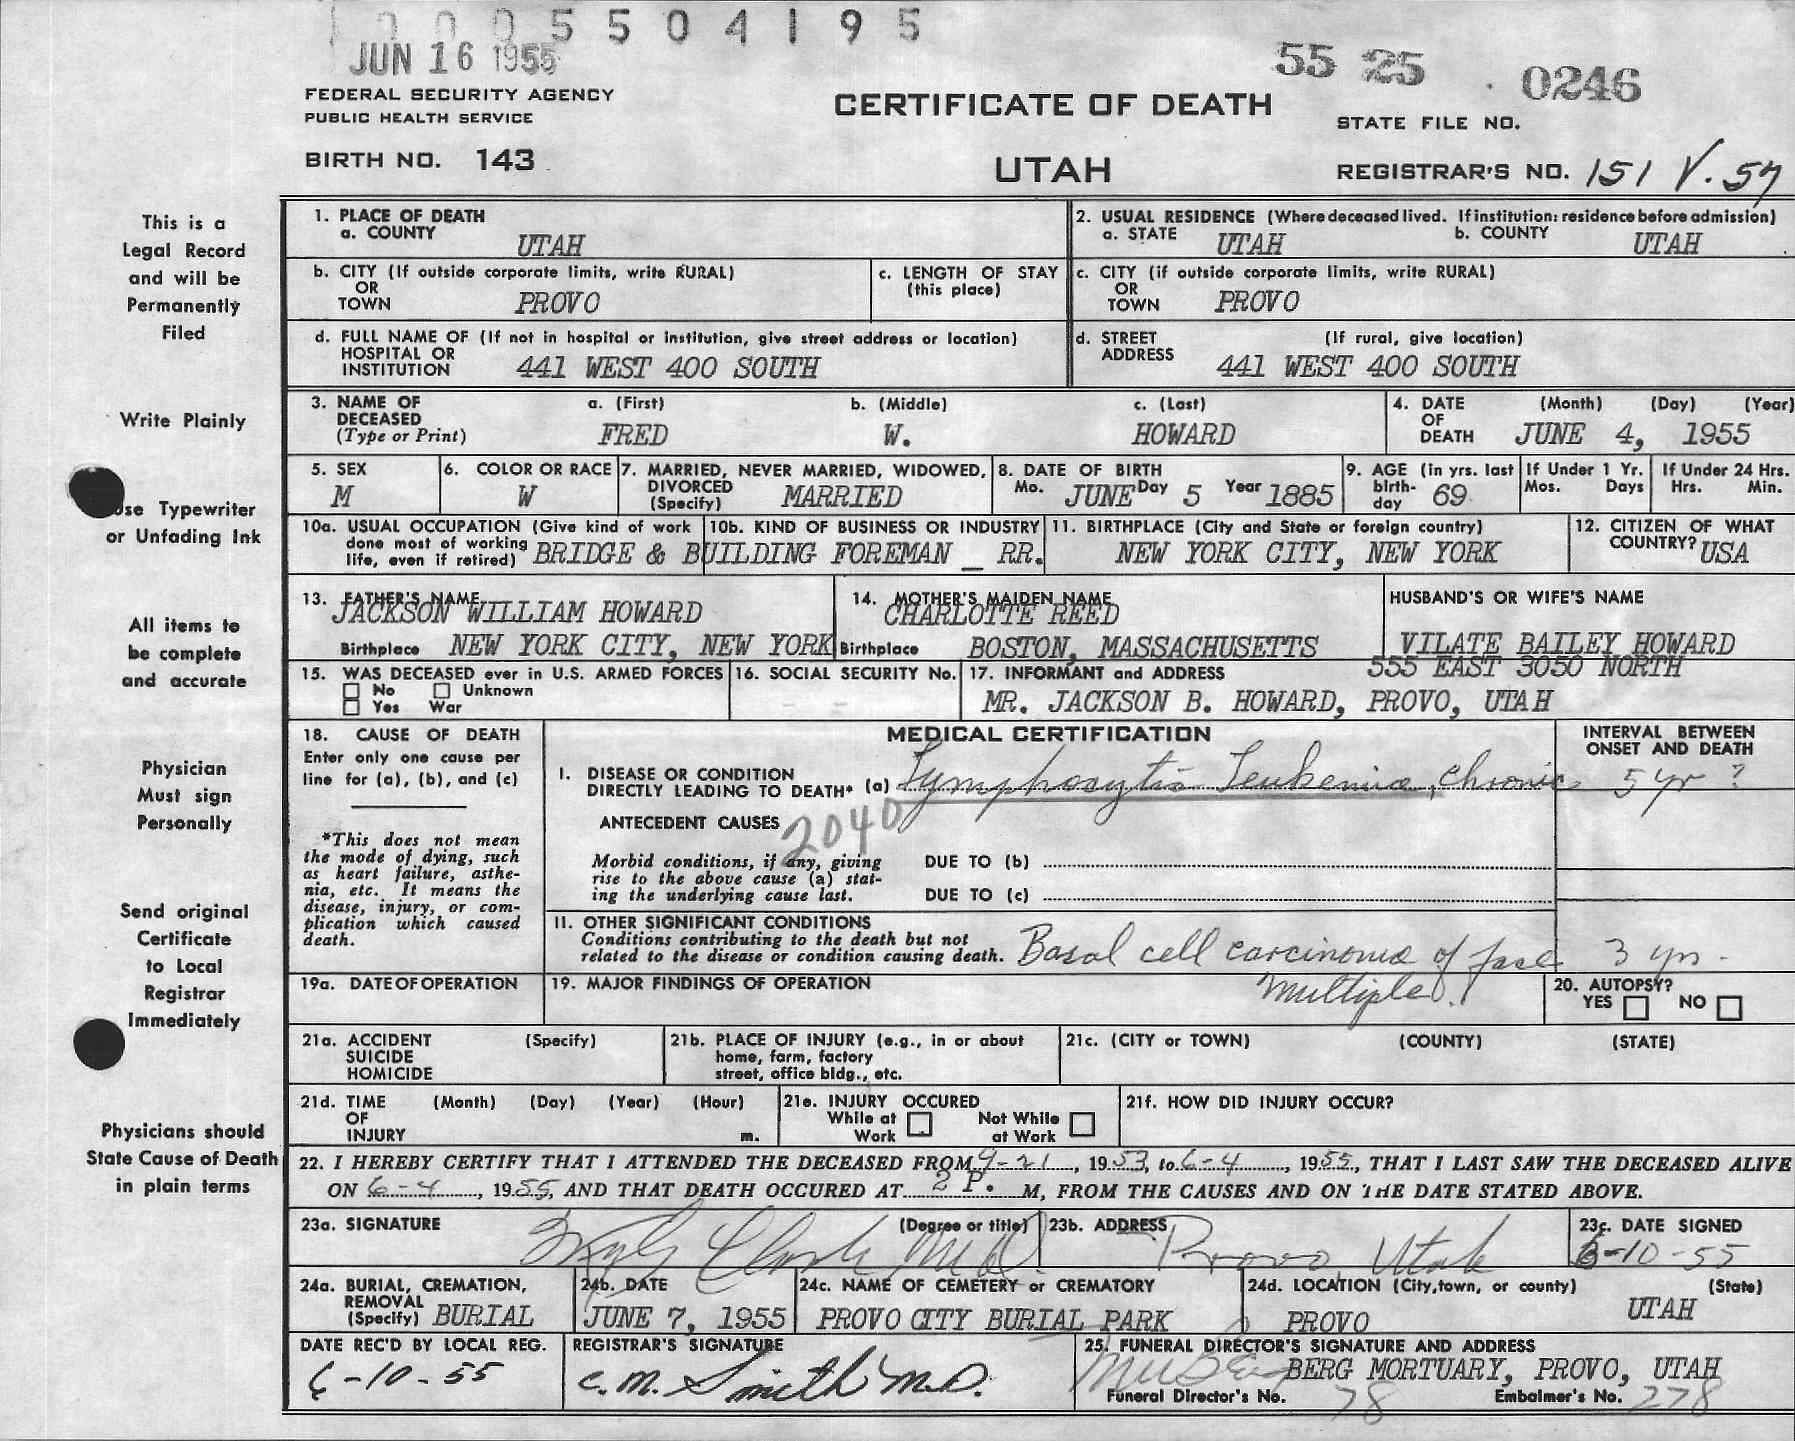 1000 5504195
JUN 16 1955
55 25 0246
FEDERAL SECURITY AGENCY
PUBLIC HEALTH SERVICE
CERTIFICATE OF DEATH
STATE FILE NO.
BIRTH NO. 143
UTAH
REGISTRAR'S NO. 151 V. 57
This is a
Legal Record
and will be
Permanently
Filed
Write Plainly
Use Typewriter
or Unfading Ink
All items to
be complete
and accurate
Physician
Must sign
Personally
Send original
Certificate
to Local
Registrar
Immediately
Physicians should
State Cause of Death
in plain terms
1. PLACE OF DEATH
a. COUNTY UTAH
2. USUAL RESIDENCE (Where deceased lived. If institution: residence before admission)
a. STATE UTAH b. COUNTY UTAH
b. CITY (If outside corporate limits, write RURAL)
OR
TOWN PROVO
c. LENGTH OF STAY
(this place)
c. CITY (if outside corporate limits, write RURAL)
OR
TOWN PROVO
d. FULL NAME OF (If not in hospital or institution, give street address or location)
HOSPITAL OR
INSTITUTION 441 WEST 400 SOUTH
d. STREET (If rural, give location)
ADDRESS 441 WEST 400 SOUTH
3. NAME OF DECEASED
(Type or Print)
a. (First) b. (Middle) c. (Last)
FRED W. HOWARD
4. DATE OF DEATH (Month) (Day) (Year)
JUNE 4, 1955
5. SEX
M
6. COLOR OR RACE
W
7. MARRIED, NEVER MARRIED, WIDOWED,
DIVORCED
(Specify) MARRIED
8. DATE OF BIRTH
Mo. JUNE Day 5 Year 1885
9. AGE (in yrs. last
birth-
day 69
If Under 1 Yr.
Mos. Days
If Under 24 Hrs.
Hrs. Min.
10a. USUAL OCCUPATION (Give kind of work
done most of working
life, even if retired)
10b. KIND OF BUSINESS OR INDUSTRY
BRIDGE & BUILDING FOREMAN _ RR.
11. BIRTHPLACE (City and State or foreign country)
NEW YORK CITY, NEW YORK
12. CITIZEN OF WHAT
COUNTRY? USA
13. FATHER'S NAME
JACKSON WILLIAM HOWARD
Birthplace NEW YORK CITY, NEW YORK
14. MOTHER'S MAIDEN NAME
CHARLOTTE REED
Birthplace BOSTON, MASSACHUSETTS
HUSBAND'S OR WIFE'S NAME
VILATE BAILEY HOWARD
15. WAS DECEASED ever in U.S. ARMED FORCES
No Unknown
Yes War
16. SOCIAL SECURITY No.
17. INFORMANT and ADDRESS
555 EAST 3050 NORTH
MR. JACKSON B. HOWARD, PROVO, UTAH
18. CAUSE OF DEATH
Enter only one cause per
line for (a), (b), and (c)
*This does not mean
the mode of dying, such
as heart failure, asthe-
nia, etc. It means the
disease, injury, or com-
plication which caused
death.
MEDICAL CERTIFICATION
INTERVAL BETWEEN
ONSET AND DEATH
I. DISEASE OR CONDITION
DIRECTLY LEADING TO DEATH* (a) Lymphocytic Leukemia, Chronic 5 yr ?
ANTECEDENT CAUSES 2040
Morbid conditions, if any, giving
rise to the above cause (a) stat-
ing the underlying cause last.
DUE TO (b)
DUE TO (c)
11. OTHER SIGNIFICANT CONDITIONS
Conditions contributing to the death but not
related to the disease or condition causing death.
Basal cell carcinoma of face 3 yrs.
Multiple.
19a. DATE OF OPERATION
19. MAJOR FINDINGS OF OPERATION
20. AUTOPSY?
YES NO
21a. ACCIDENT (Specify)
SUICIDE
HOMICIDE
21b. PLACE OF INJURY (e.g., in or about
home, farm, factory
street, office bldg., etc.
21c. (CITY or TOWN) (COUNTY) (STATE)
21d. TIME (Month) (Day) (Year) (Hour)
OF
INJURY m.
21e. INJURY OCCURED
While at Work Not While at Work
21f. HOW DID INJURY OCCUR?
22. I HEREBY CERTIFY THAT I ATTENDED THE DECEASED FROM 9-21, 1953, to 6-4, 1955, THAT I LAST SAW THE DECEASED ALIVE
ON 6-4, 1955, AND THAT DEATH OCCURED AT 2 P. M, FROM THE CAUSES AND ON THE DATE STATED ABOVE.
23a. SIGNATURE (Degree or title)
Clark M.D.
23b. ADDRESS
Provo, Utah
23c. DATE SIGNED
6-10-55
24a. BURIAL, CREMATION,
REMOVAL
(Specify) BURIAL
24b. DATE
JUNE 7, 1955
24c. NAME OF CEMETERY or CREMATORY
PROVO CITY BURIAL PARK
24d. LOCATION (City, town, or county) (State)
PROVO UTAH
DATE REC'D BY LOCAL REG.
6-10-55
REGISTRAR'S SIGNATURE
C. M. Smith M.D.
25. FUNERAL DIRECTOR'S SIGNATURE AND ADDRESS
BERG MORTUARY, PROVO, UTAH
Funeral Director's No. 78 Embalmer's No. 278